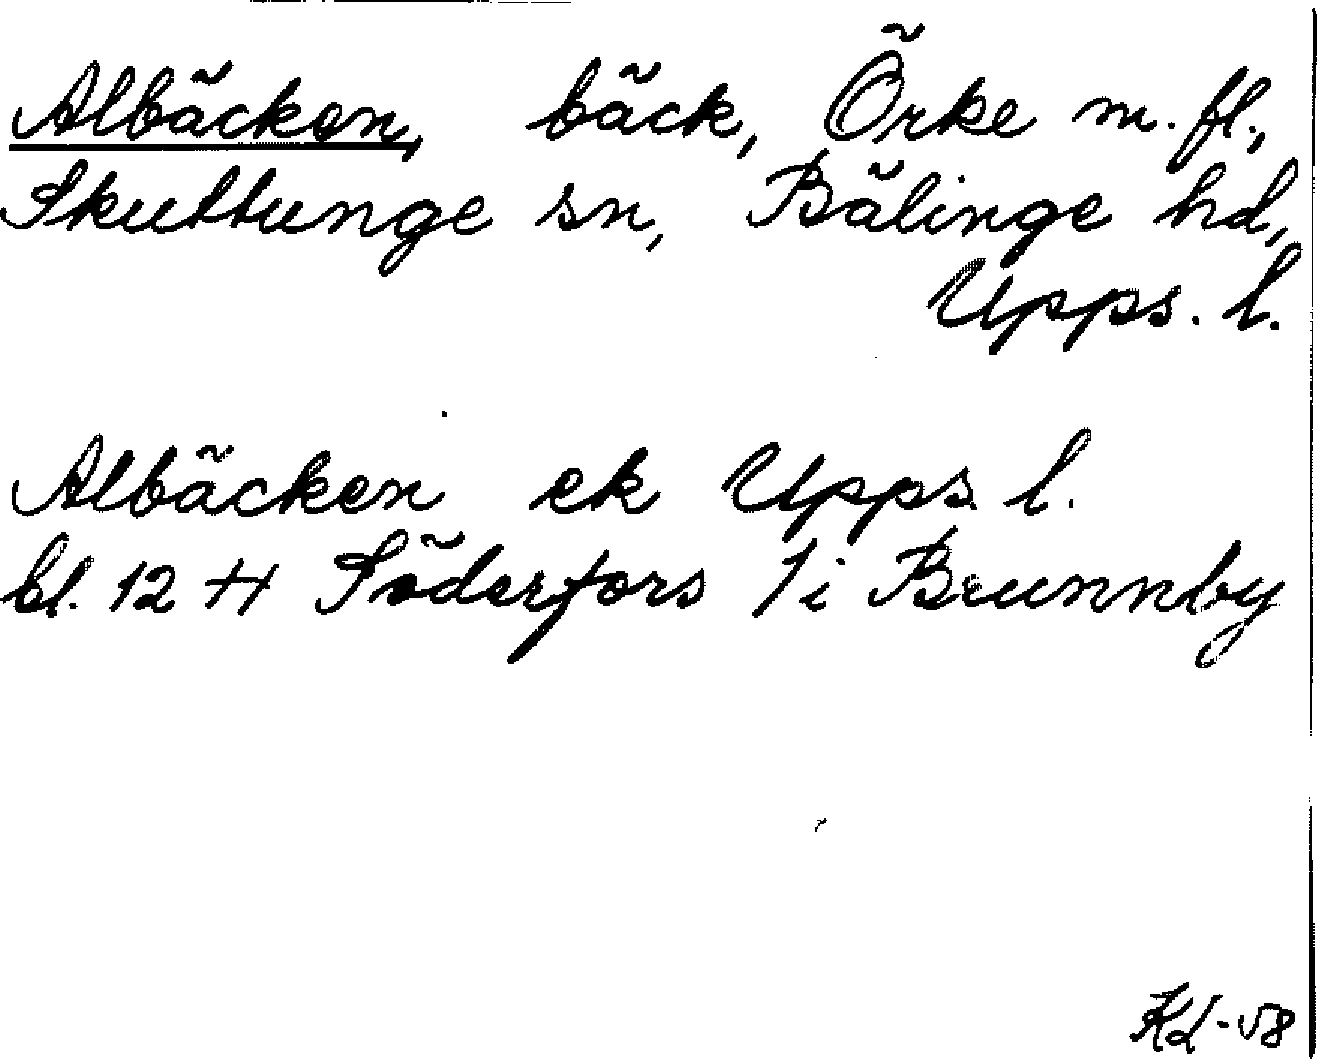 Albäcken, bäck, Örke m. fl.,
Skuttunge sn, Bälinge hd,
Upps. l.
Albäcken ek Upps. l.
bl. 12 H Söderfors /i Brunnby
KL-58